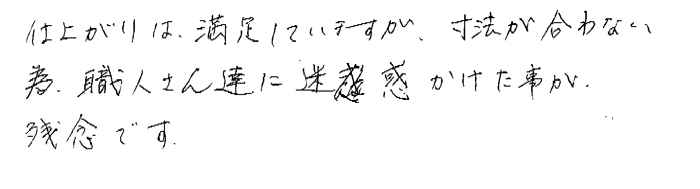 仕上がりは、満足していますが、寸法が合わない
為、職人さん達に迷惑かけた事が、
残念です。